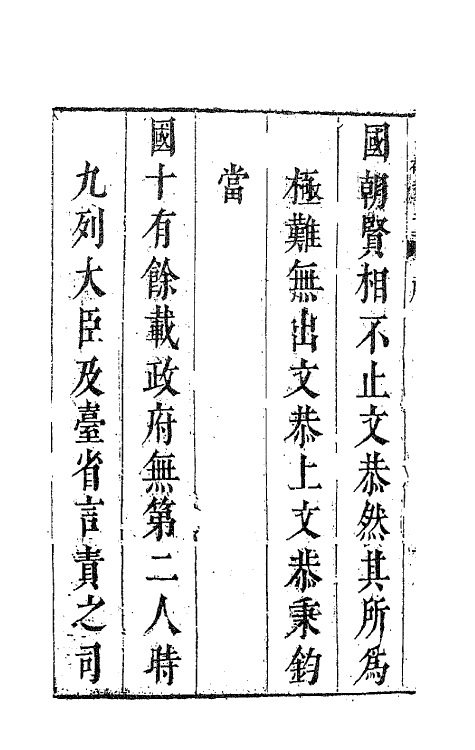 國朝賢相不止文恭然其所爲
極難無出文恭上文恭秉鈞
當
國十有餘載政府無第二人時
九列大臣及臺省言責之司